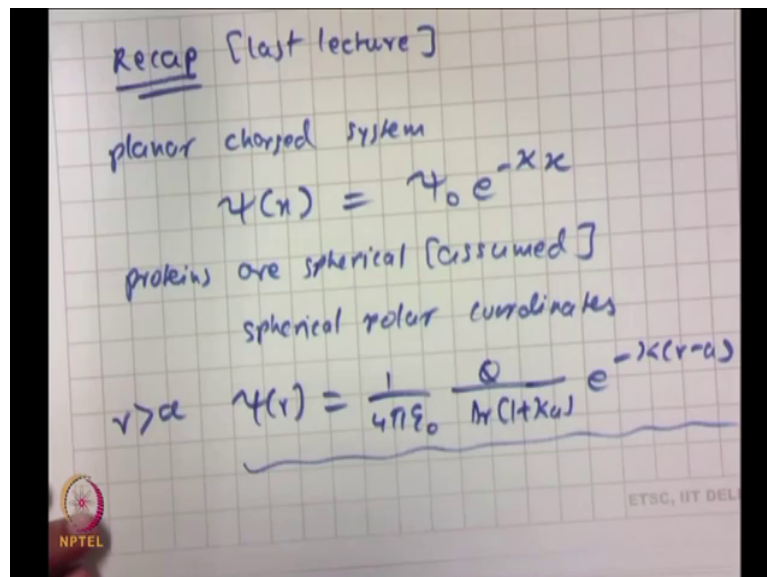 Recap [last lecture]
planar charged system
ψ(x) = ψ₀ e^{-κx}
proteins are spherical [assumed]
spherical polar coordinates
r>a ψ(r) = \frac{1}{4πε₀} \frac{Q}{Dr(1+κa)} e^{-κ(r-a)}
ETSC, IIT DEL
NPTEL